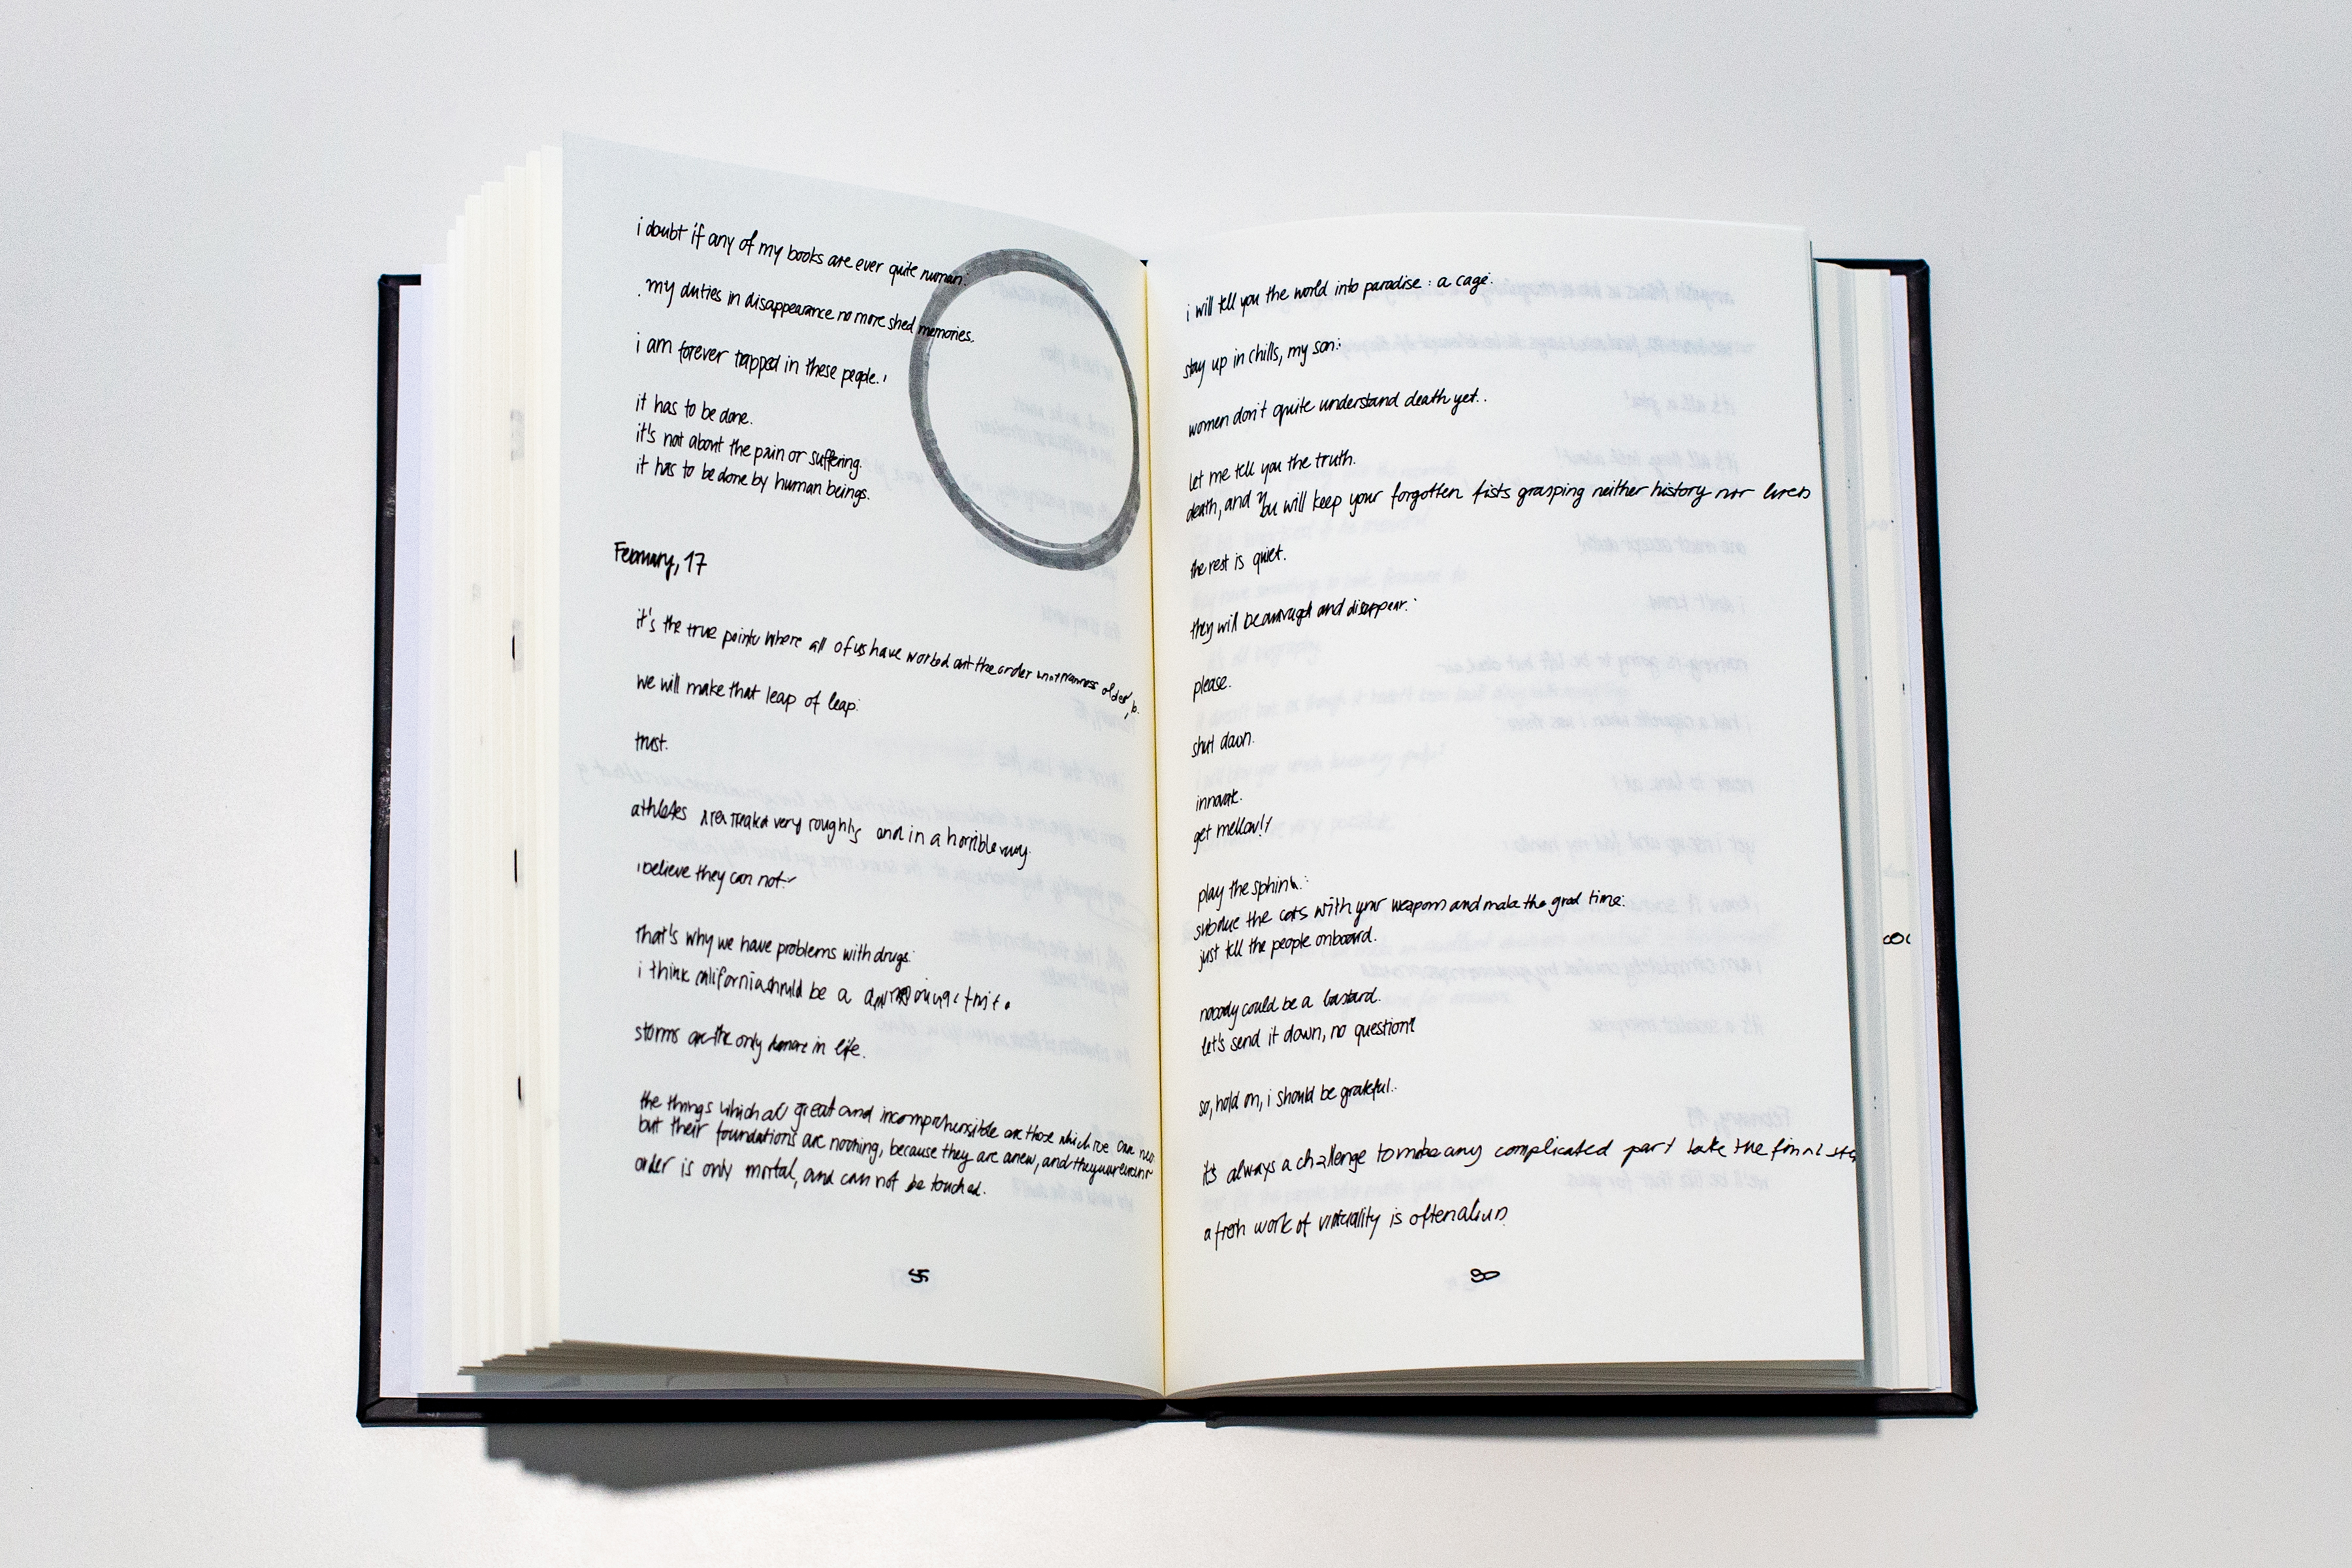 i doubt if any of my books are ever quite human.
my duties in disappearance no more shed memories.
i am forever trapped in these people.
it has to be done.
it's not about the pain or suffering.
it has to be done by human beings.
February, 17
it's the true point where all of us have worked out the order
we will make that leap of leap.
trust.
athletes are treated very roughly and in a horrible way.
i believe they can not.
that's why we have problems with drugs.
i think california should be a
storms are the only in life.
the things which all great and incomprehensible are those which we can
but their foundations are nothing, because they are anew, and they
order is only mortal, and can not be touched.
i will tell you the world into paradise : a cage.
stay up in chills, my son:
women don't quite understand death yet..
let me tell you the truth.
death, and you will keep your forgotten fists grasping neither history nor lives
the rest is quiet.
they will be and disappear.
please.
shut down.
innovate.
get mellow!
play the sphinx:
subdue the cats with your weapons and make the good time.
just tell the people onboard.
nobody could be a bastard.
let's send it down, no question!
so, hold on, i should be grateful..
it's always a challenge to make any complicated part take the final
a fresh work of virtuality is often
90